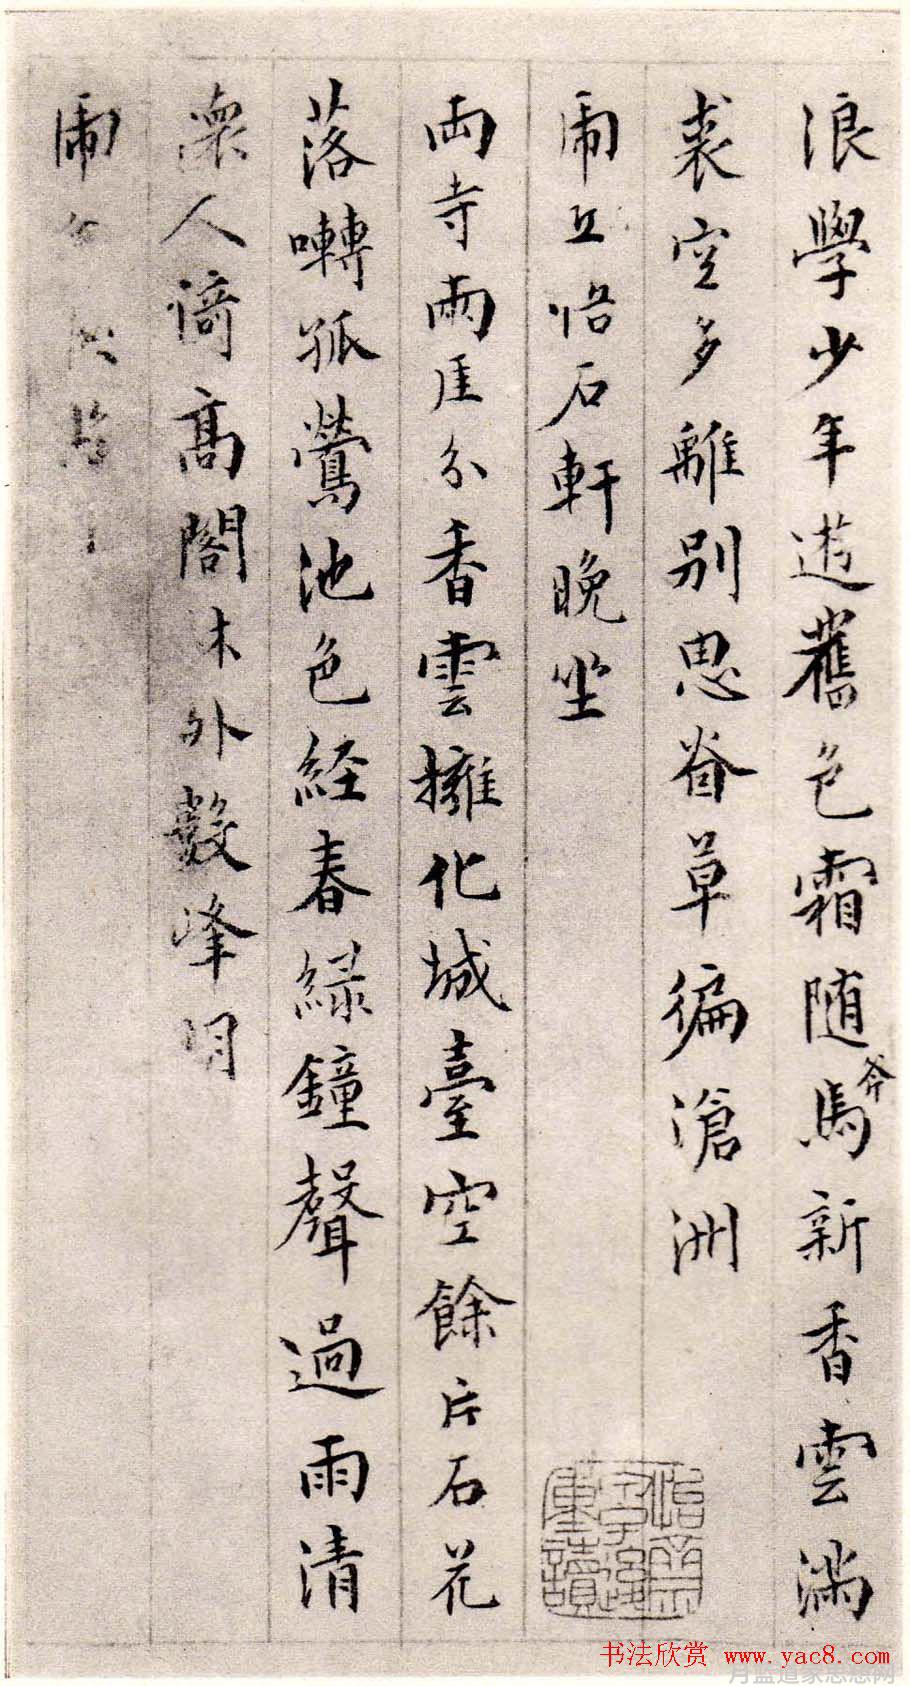 浪學少年遊舊色霜随馬新香雲滿
莽
裘空多離別思眷草徧滄洲
虎丘悟石軒晚坐
両寺兩厓分香雲擁化城臺空餘片石花
落囀孤鶯池色經春緑鐘聲過雨清
衆人倚高閣木外數峰明
虎
书法欣赏 www.yac8.com